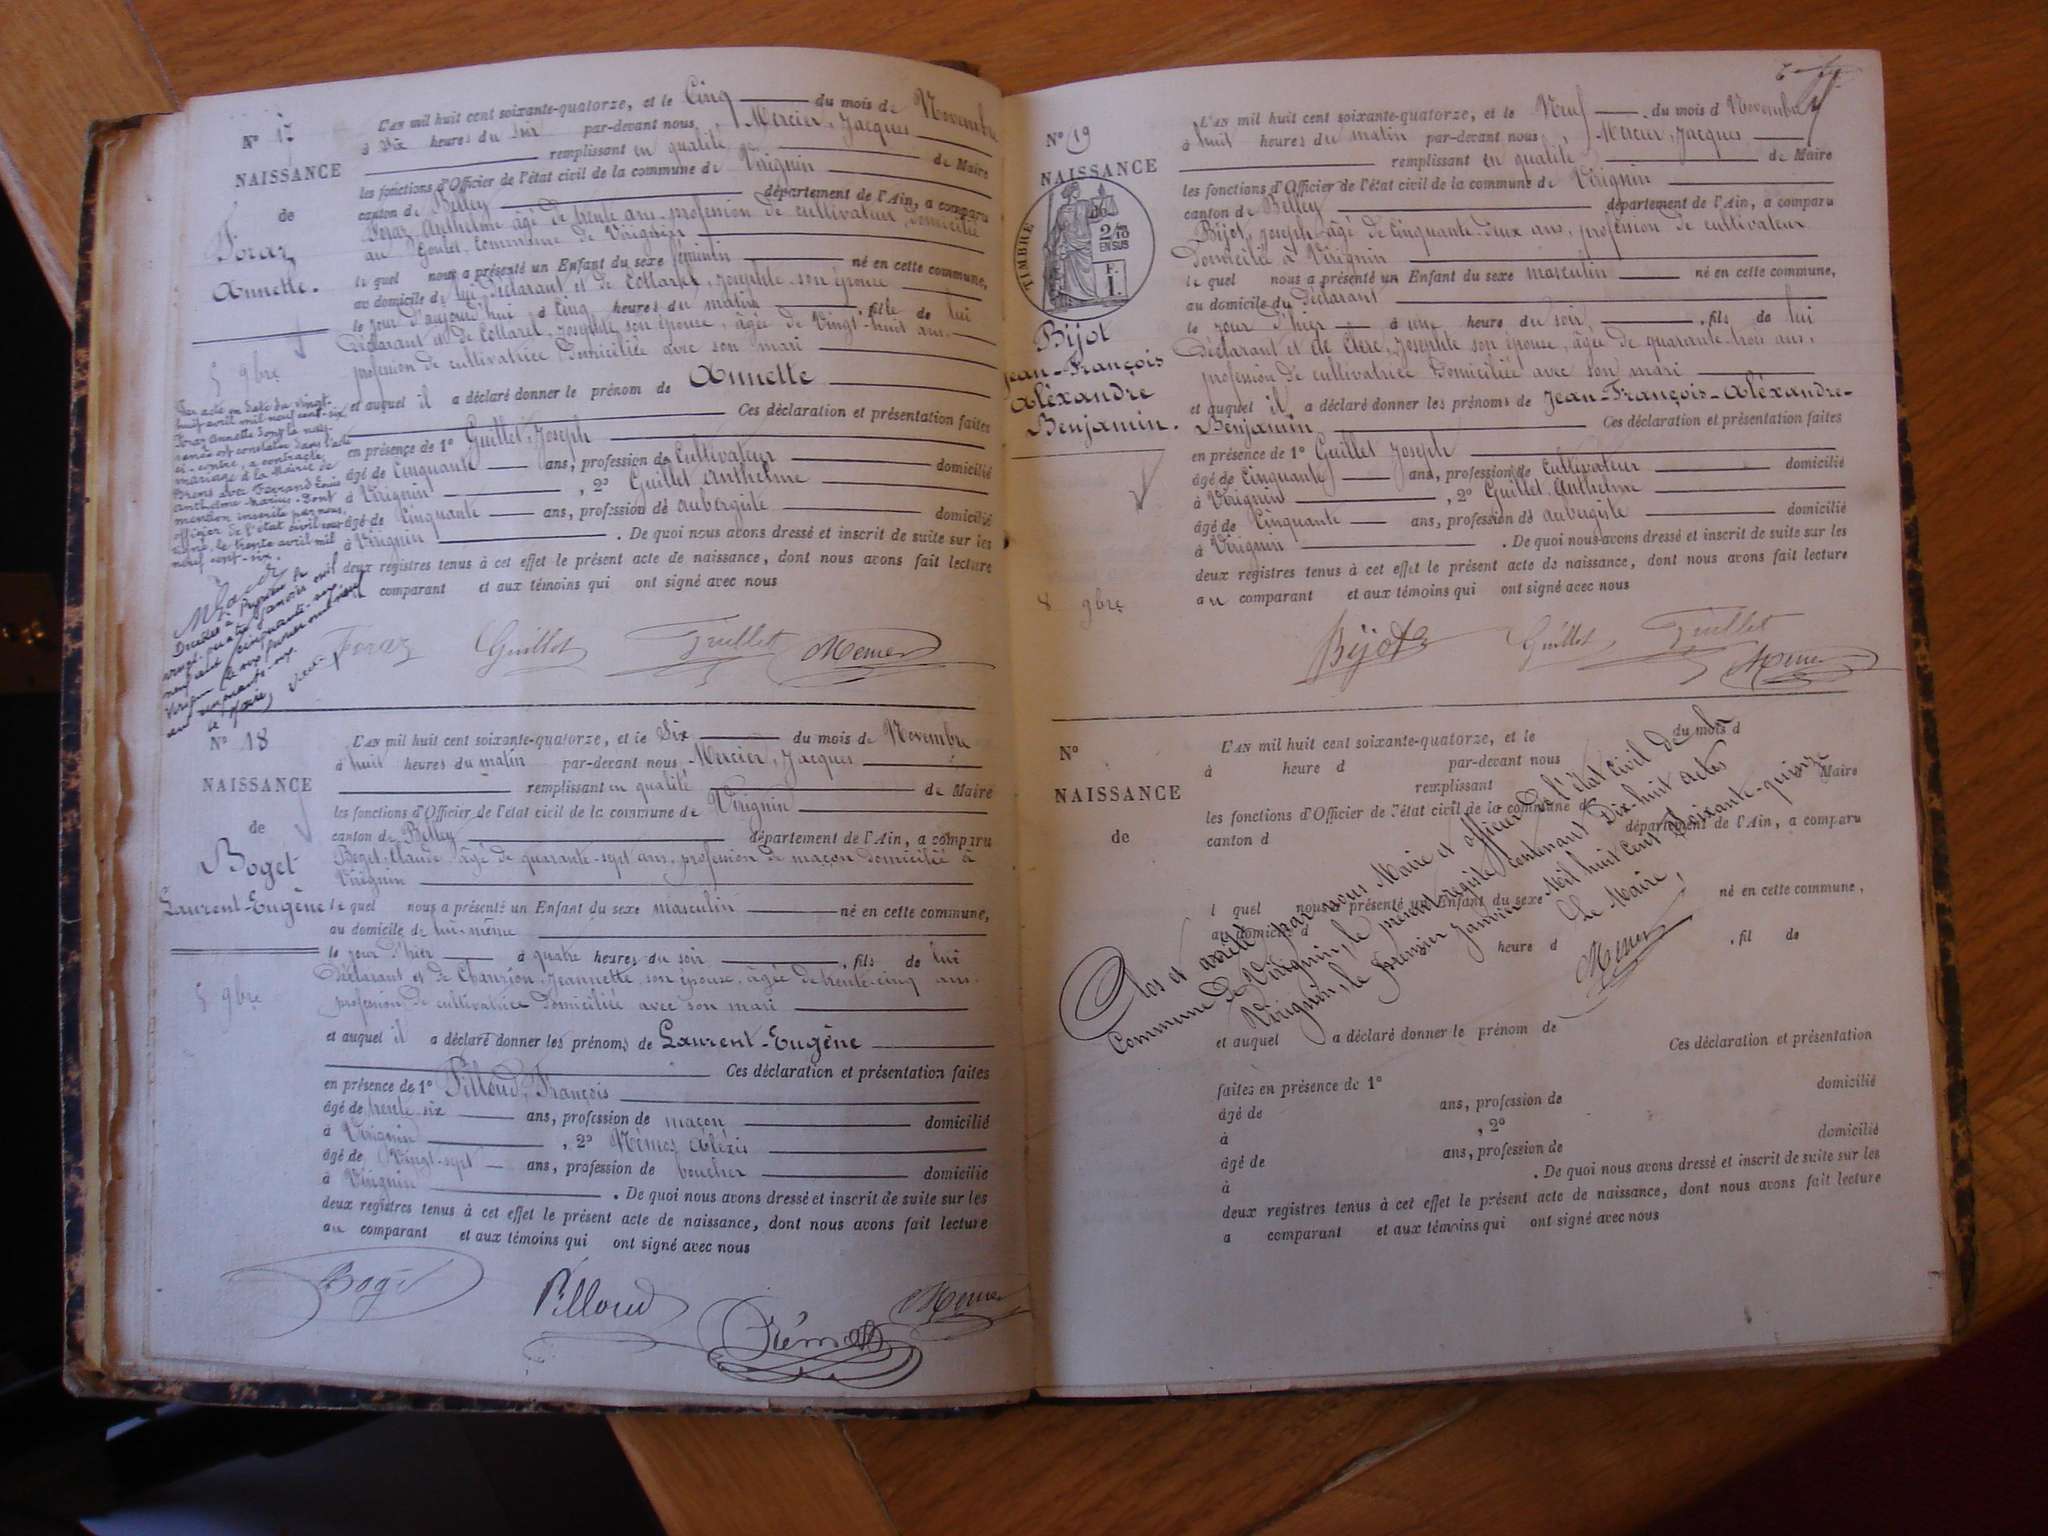 N° 17
NAISSANCE
de
Foraz
Annette.
5 9bre
L'AN mil huit cent soixante-quatorze, et le Cinq du mois de Novembre
à Six heures du soir par-devant nous, Mercier, Jacques
remplissant en qualité de Maire
les fonctions d'Officier de l'état civil de la commune de Virignin
canton de Belley département de l'Ain, a comparu
Foraz, Anthelme âgé de trente ans, profession de cultivateur domicilié
au Goulet, Commune de Virignin
le quel nous a présenté un Enfant du sexe féminin né en cette commune,
au domicile de lui déclarant et de Collarel, Josephte son épouse
le jour d'aujourd'hui à Cinq heures du matin, fille de lui
Déclarant et de Collarel, Josephte son épouse, âgée de Vingt-huit ans.
profession de cultivatrice domiciliée avec son mari
et auquel il a déclaré donner le prénom de Annette
Ces déclaration et présentation faites
en présence de 1° Guillet, Joseph
âgé de Cinquante ans, profession de Cultivateur domicilié
à Virignin, 2° Guillet Anthelme
âgé de Cinquante ans, profession de aubergiste domicilié
à Virignin. De quoi nous avons dressé et inscrit de suite sur les
deux registres tenus à cet effet le présent acte de naissance, dont nous avons fait lecture
comparant et aux témoins qui ont signé avec nous
Par acte en date du vingt-
huit avril mil neuf cent-six
Foraz Annette dont la nais-
sance est constatée dans l'acte
ci-contre, a contracté
mariage à la Mairie de
Brens avec Ferrand Louis
Anthelme-Marius. Dont
mention inscrite par nous,
officier de l'état civil sous-
signé, le trente avril mil
neuf cent-six.
Foraz Guillet Guillet Mercier
N° 18
NAISSANCE
de
Boget
Laurent-Eugène
5 9bre
L'AN mil huit cent soixante-quatorze, et le Six du mois de Novembre
à huit heures du matin par-devant nous Mercier, Jacques
remplissant en qualité de Maire
les fonctions d'Officier de l'état civil de la commune de Virignin
canton de Belley département de l'Ain, a comparu
Boget, Claude, âgé de quarante-sept ans, profession de maçon domicilié à
Virignin
le quel nous a présenté un Enfant du sexe masculin né en cette commune,
au domicile de lui-même
le jour d'hier à quatre heures du soir, fils de lui
Déclarant et de Chanzion, Jeannette, son épouse, âgée de trente-cinq ans.
profession de cultivatrice domiciliée avec son mari
et auquel il a déclaré donner les prénoms de Laurent-Eugène
Ces déclaration et présentation faites
en présence de 1° Pilloud, François
âgé de trente six ans, profession de maçon domicilié
à Virignin, 2° Alexis
âgé de Vingt-sept ans, profession de boucher domicilié
à Virignin. De quoi nous avons dressé et inscrit de suite sur les
deux registres tenus à cet effet le présent acte de naissance, dont nous avons fait lecture
au comparant et aux témoins qui ont signé avec nous
Boget Pilloud Mercier
N° 19
NAISSANCE
TIMBRE
2/10
EN SUS
F.
1.
Bijot
Jean-François
Aléxandre
Benjamin.
8 9bre
L'AN mil huit cent soixante-quatorze, et le Neuf du mois d Novembre
à huit heures du matin par-devant nous, Mercier, Jacques
remplissant en qualité de Maire
les fonctions d'Officier de l'état civil de la commune de Virignin
canton de Belley département de l'Ain, a comparu
Bijot, Joseph âgé de cinquante-deux ans, profession de cultivateur
domicilié à Virignin
le quel nous a présenté un Enfant du sexe masculin né en cette commune,
au domicile du déclarant
le jour d'hier à une heure du soir, fils de lui
Déclarant et de Clerc, Josephte son épouse, âgée de quarante-trois ans,
profession de cultivatrice domiciliée avec son mari
et auquel il a déclaré donner les prénoms de Jean-François-Aléxandre-
Benjamin Ces déclaration et présentation faites
en présence de 1° Guillet Joseph
âgé de Cinquante ans, profession de Cultivateur domicilié
à Virignin, 2° Guillet, Anthelme
âgé de Cinquante ans, profession de aubergiste domicilié
à Virignin. De quoi nous avons dressé et inscrit de suite sur les
deux registres tenus à cet effet le présent acte de naissance, dont nous avons fait lecture
au comparant et aux témoins qui ont signé avec nous
Bijot Guillet Guillet Mercier
N°
NAISSANCE
de
L'AN mil huit cent soixante-quatorze, et le du mois d
à heure d par-devant nous
remplissant Maire
les fonctions d'Officier de l'état civil de la commune d
canton d département de l'Ain, a comparu
l quel nous a présenté un Enfant du sexe né en cette commune,
au domicile d
heure d, fil de
Clos et arrêté par nous Maire et officier de l'état civil de la
Commune de Virignin, le présent registre contenant Dix-huit actes
Virignin, le premier Janvier Mil huit cent soixante-quinze
Le Maire,
Mercier
et auquel a déclaré donner le prénom de
Ces déclaration et présentation
faites en présence de 1° domicilié
âgé de ans, profession de
à, 2° domicilié
âgé de ans, profession de
à. De quoi nous avons dressé et inscrit de suite sur les
deux registres tenus à cet effet le présent acte de naissance, dont nous avons fait lecture
a comparant et aux témoins qui ont signé avec nous